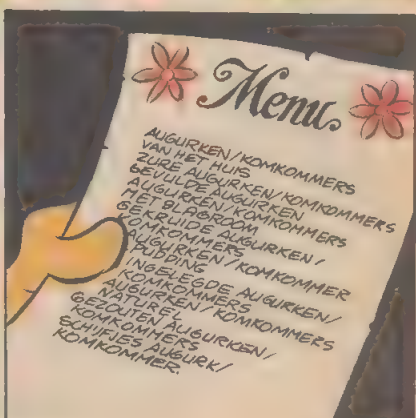 Menu
AUGURKEN/KOMKOMMERS
VAN HET HUIS
ZURE AUGURKEN/KOMKOMMERS
GEVULDE AUGURKEN
AUGURKEN/KOMKOMMERS
MET SLAGROOM
GEKRUIDE AUGURKEN/
KOMKOMMERS
AUGURKEN/KOMKOMMER
PUDDING
INGELEGDE AUGURKEN/
KOMKOMMERS
AUGURKEN/KOMKOMMERS
NATUREL
GEZOUTEN AUGURKEN/
KOMKOMMERS
SCHIJFJES AUGURK/
KOMKOMMER.